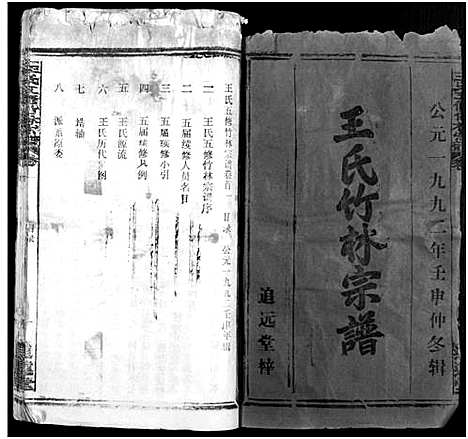 公元一九九二年壬申仲冬辑
王氏竹林宗譜
追远堂梓
王氏五修竹林宗谱卷首 目录 公元一九九二壬申年辑
一 王氏五修竹林宗谱序
二 五届续修人员名目
三 五届续修小引
四 五届续修凡例
五 王氏源流
六 王氏历代 图
七 塔抽
八 派系原委